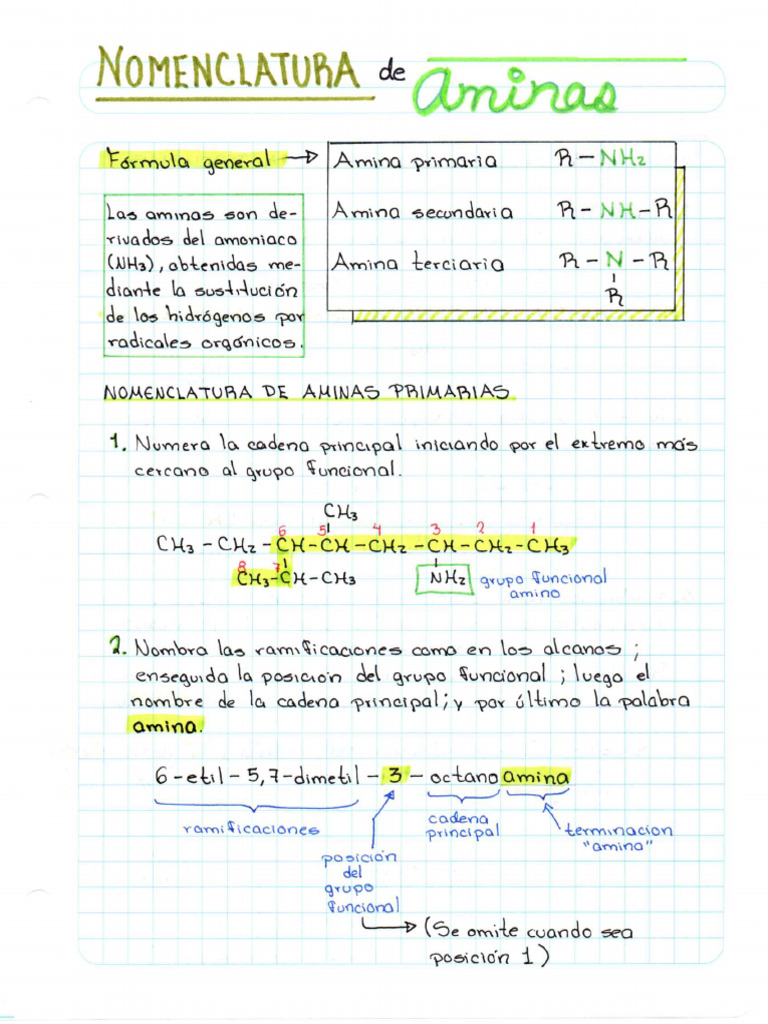 NOMENCLATURA de Aminas
Fórmula general →
Amina primaria R - NH2
Amina secundaria R - NH - R
Amina terciaria R - N - R
R
Las aminas son de-
rivados del amoniaco
(NH3), obtenidas me-
diante la sustitución
de los hidrógenos por
radicales orgánicos.
NOMENCLATURA DE AMINAS PRIMARIAS
1. Numera la cadena principal iniciando por el extremo más
cercano al grupo funcional.
CH3
6 5 4 3 2 1
CH3 - CH2 - CH - CH - CH2 - CH - CH2 - CH3
8 7
CH3 - CH - CH3 NH2 grupo funcional
amino
2. Nombra las ramificaciones como en los alcanos ;
enseguida la posición del grupo funcional ; luego el
nombre de la cadena principal; y por último la palabra
amina.
6-etil-5,7-dimetil-3-octanoamina
ramificaciones
posición
del
grupo
funcional
cadena
principal
terminacion
"amino"
→ (Se omite cuando sea
posición 1)